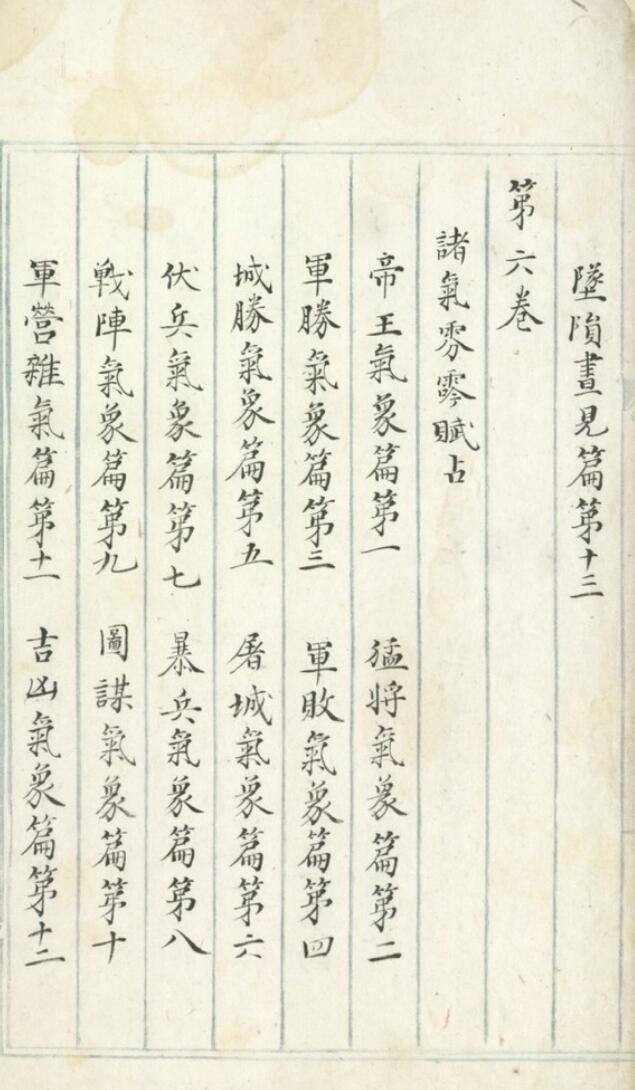 墜隕晝見篇第十三
第六卷
諸氣雰賦占
帝王氣象篇第一　猛將氣象篇第二
軍勝氣象篇第三　軍敗氣象篇第四
城勝氣象篇第五　屠城氣象篇第六
伏兵氣象篇第七　暴兵氣象篇第八
戦陣氣象篇第九　圖謀氣象篇第十
軍營雜氣篇第十一　吉凶氣象篇第十二